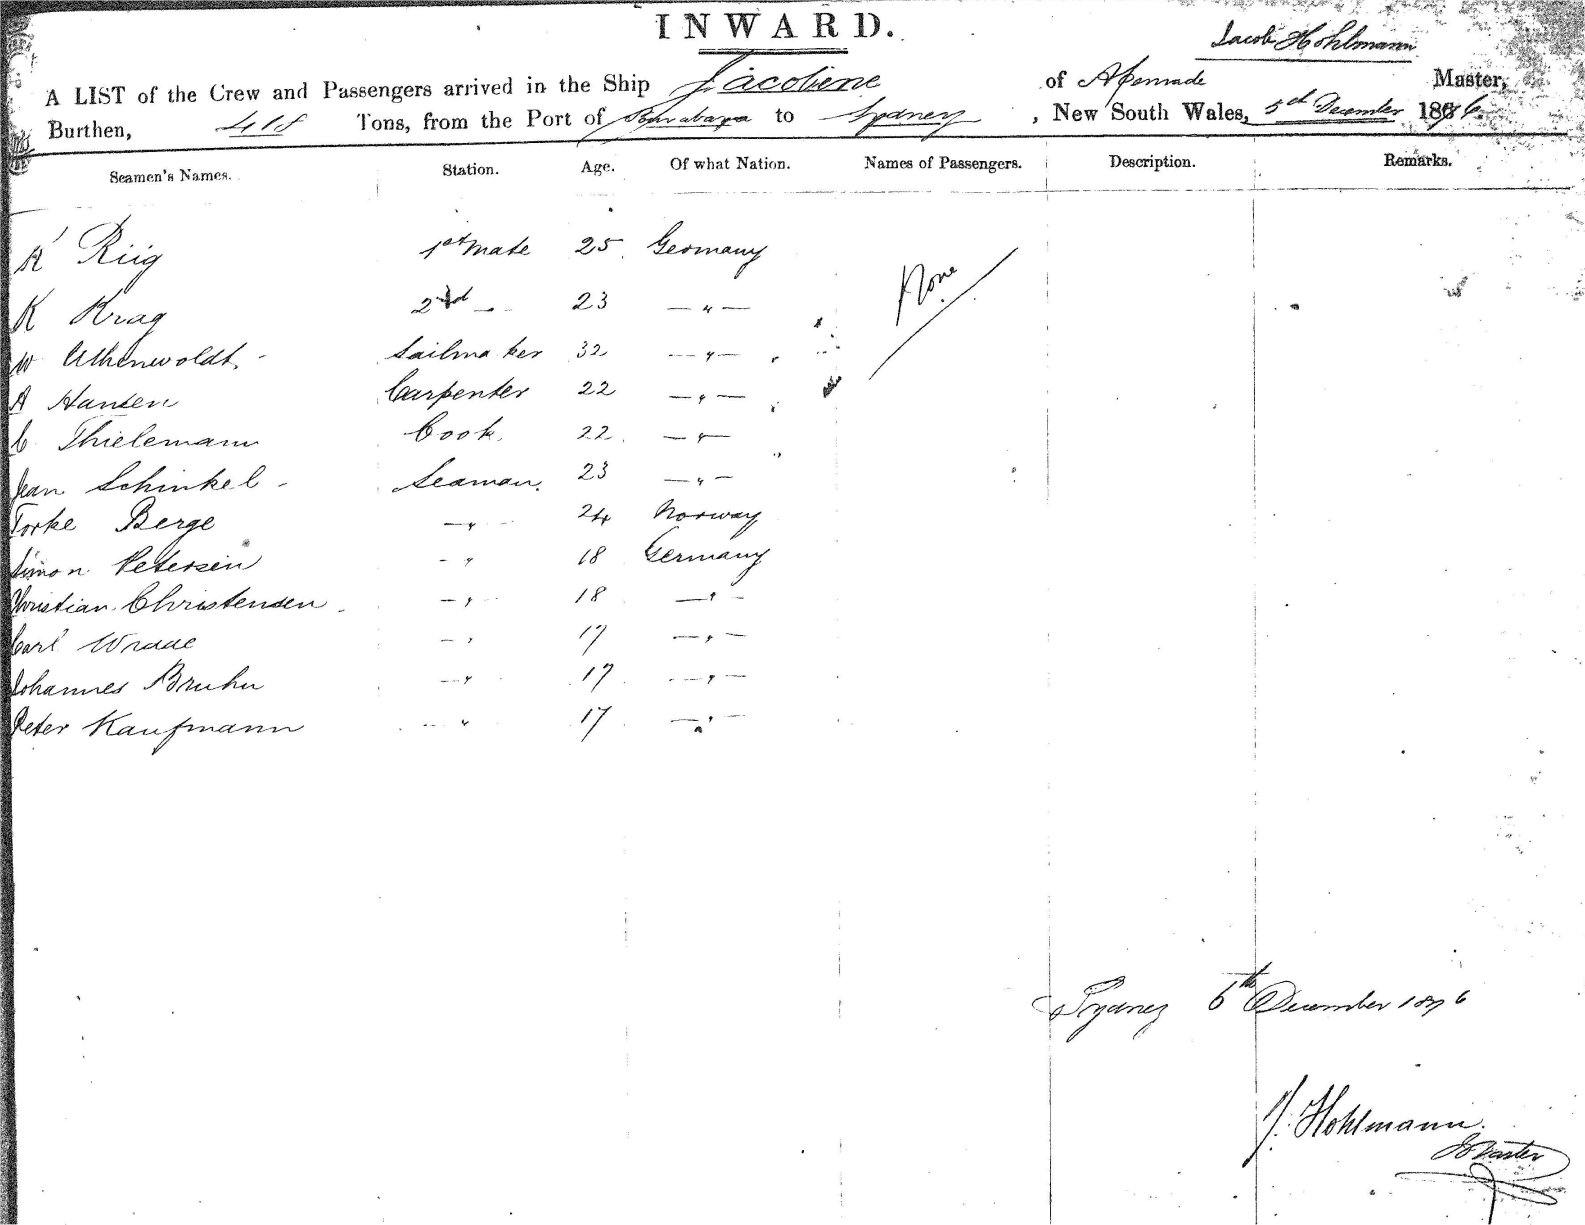 INWARD.
Jacob Hohlmann
A LIST of the Crew and Passengers arrived in the Ship Jacobine of Apenrade Master,
Burthen, 418 Tons, from the Port of Sourabaya to Sydney, New South Wales, 5th December 1876
Seamen's Names. Station. Age. Of what Nation. Names of Passengers. Description. Remarks.
R Riig 1st mate 25 Germany
None
K Krag 2nd — 23 — " —
W Uthenwoldt Sailmaker 32 — " —
A Hansen Carpenter 22 — " —
C Thielemann Cook. 22 — " —
Jean Schinkel Seaman. 23 — " —
Torke Berge — " 24 Norway
Simon Petersen - " 18 Germany
Christian Christensen — " 18 — " -
Carl Wraae — " 17 — " —
Johannes Bruhn — " 17 — " —
Peter Kaufmann — " 17 — " —
Sydney 6th December 1876
J. Hohlmann.
Master